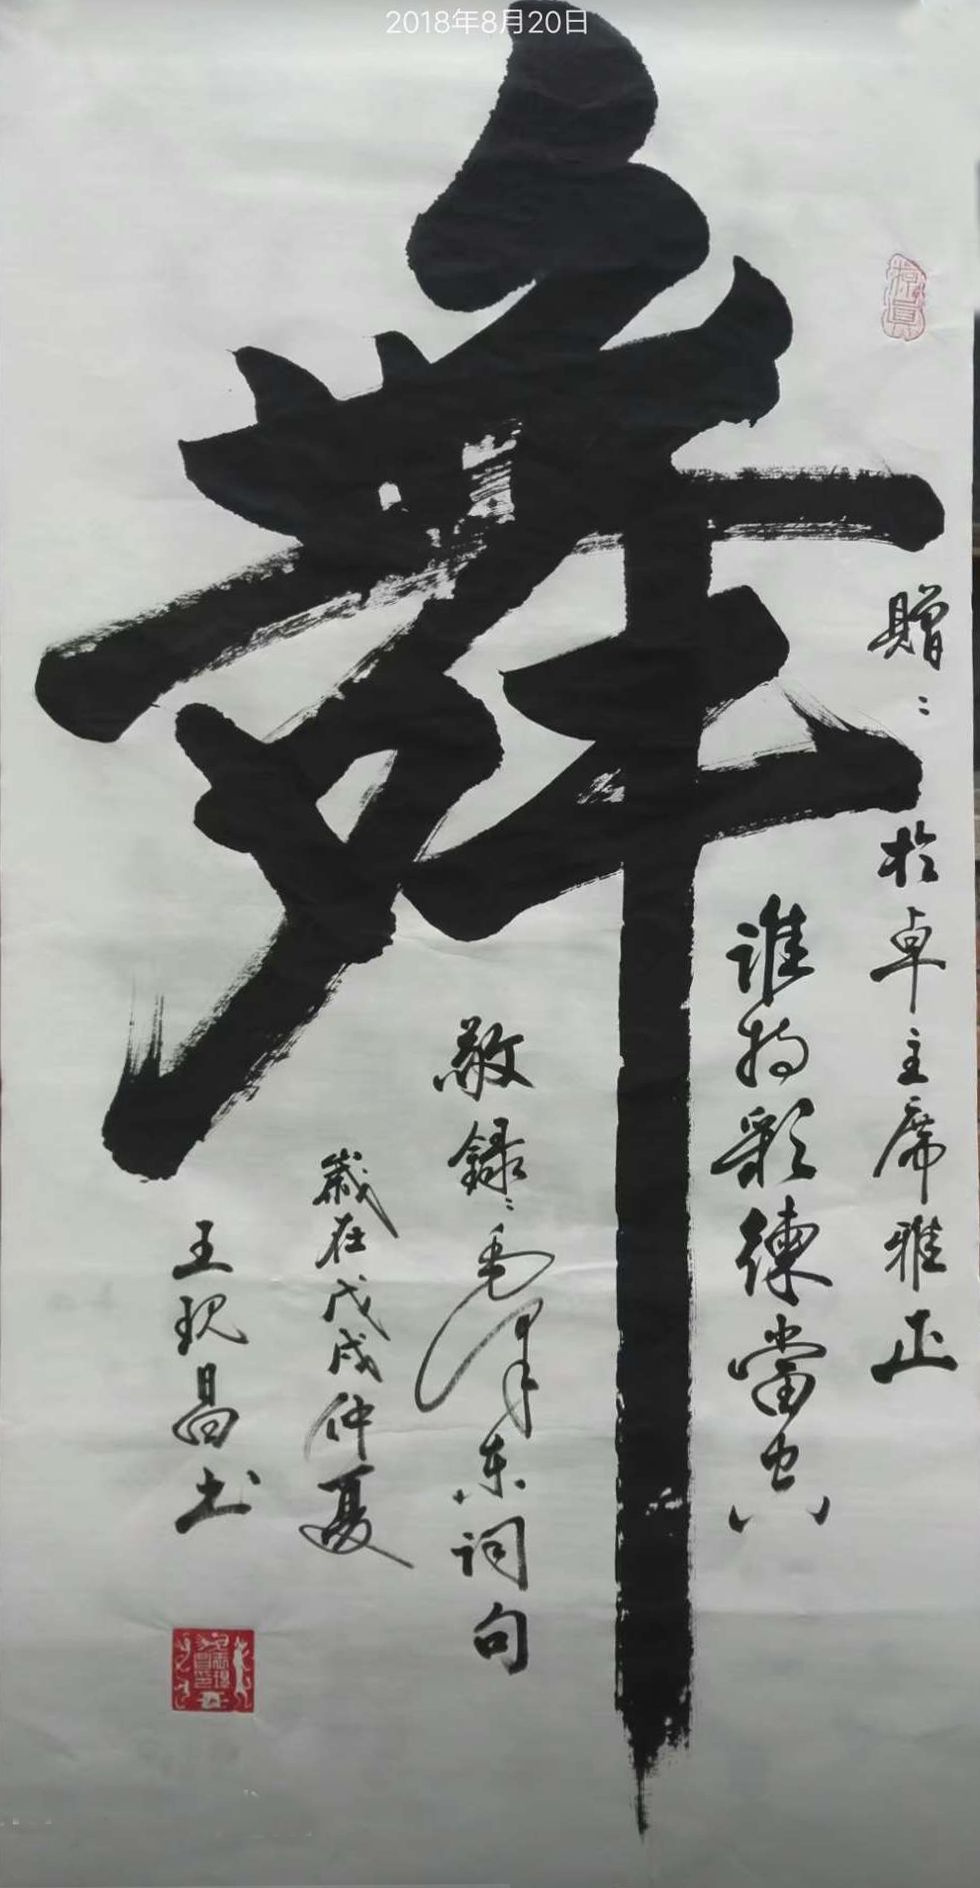 2018年8月20日
舞
贈：於卓主席雅正
誰持彩練當空
敬録：毛澤东词句
歲在戊戌仲夏
王现昌书